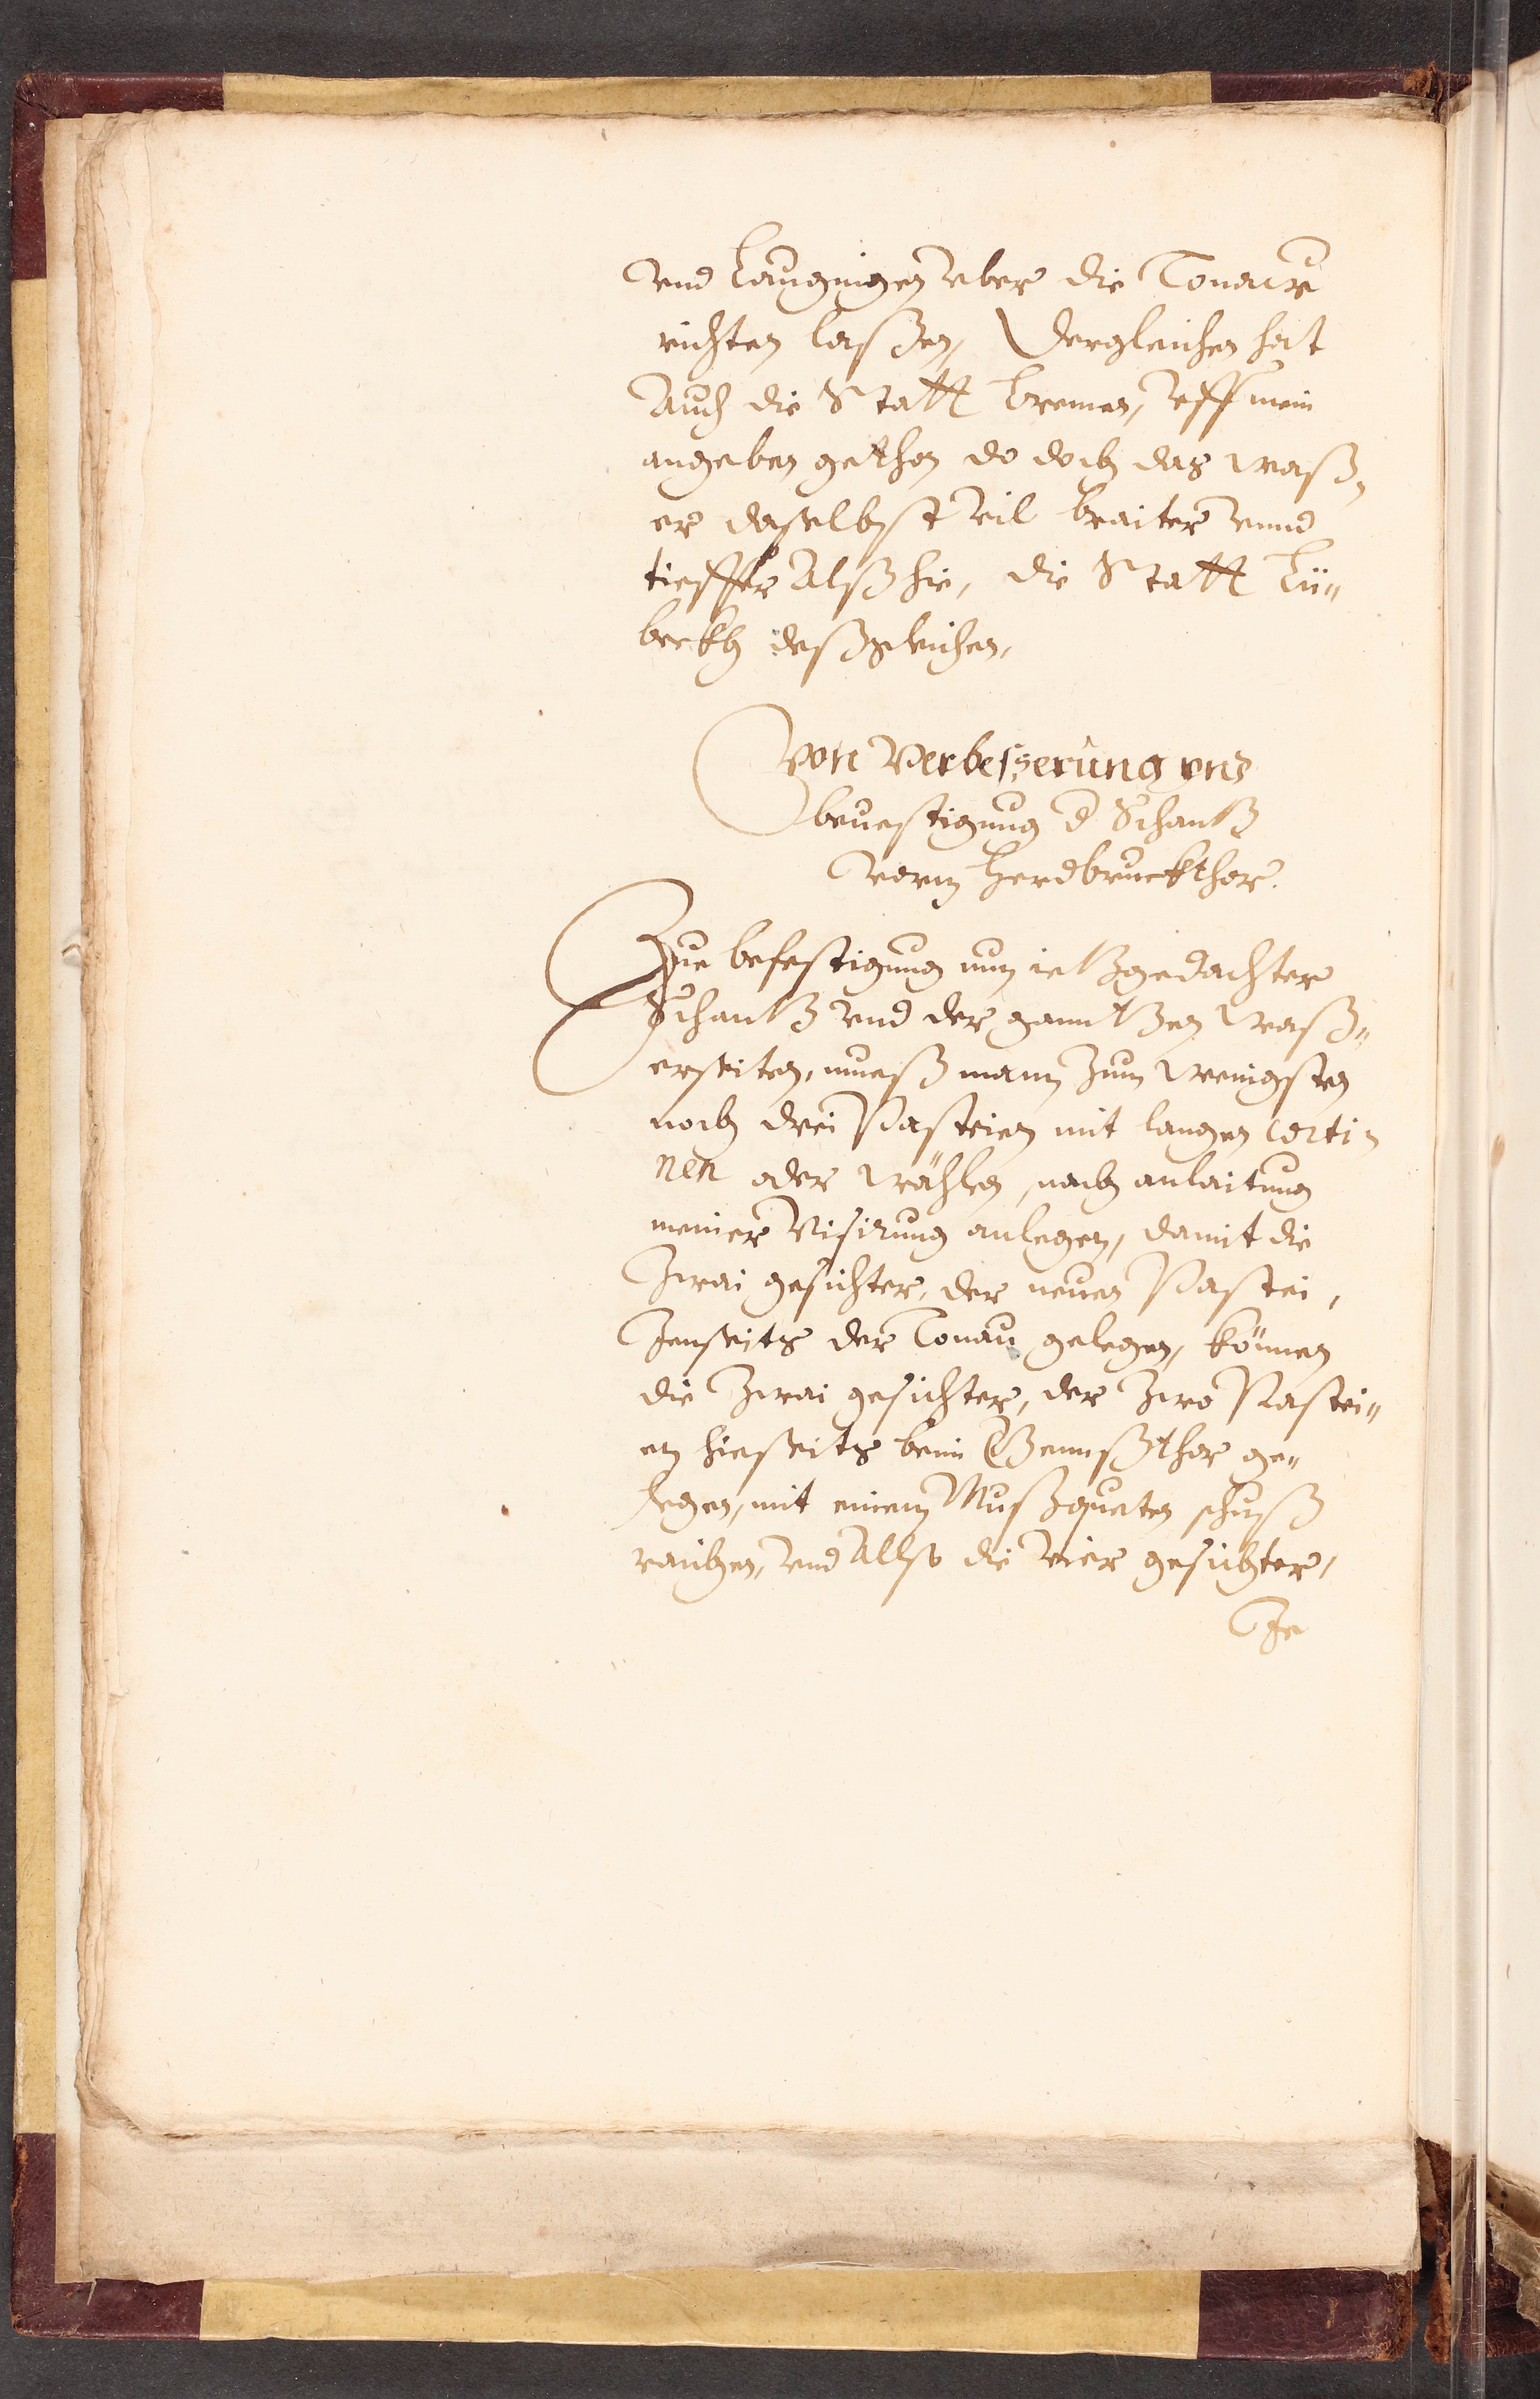 vnd Laugingen vber die Tonaw
richten laßen, Dergleichen hat
Auch die Statt Bremen, vff mein
angeben gethon do doch das waß,
er daselbst vil braiter vnnd
tieffer Alß hie, die Statt Lü„
beckh deßgleichen,
Von Verbeßerung vnd
beuestigung d Schantz
vorm Herdbruckthor.
Zue befestigung nun ietzgedachter
Schantz vnd der ganntzen Waß„
erseiten, mueß mann zum wenigsten
noch drei Pasteien mit langen Corti„
nen oder Wählen, nach anlaitung
meiner Visirung anlegen, damit die
Zwai gesichter, der neuen Pastei,
Jenseits der Tonau gelegen, können
die Zwai gesichter, der Zwo Pastei„
en hieseits beim Gennßthor ge„
legen, mit einem Mußqueten schuß
raichen, vnd Allso die vier gesichter,
Je